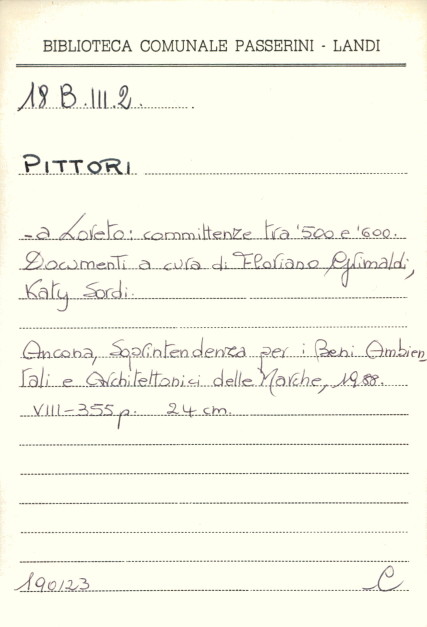 BIBLIOTECA COMUNALE PASSERINI - LANDI
18 B.III.2.
PITTORI
- a Loreto: committenze tra '500 e '600.
Documenti a cura di Floriano Grimaldi,
Katy Sordi.
Ancona, Soprintendenza per i Beni Ambien_
tali e Architettonici delle Marche, 1988.
VIII-355 p. 24 cm.
190123 C